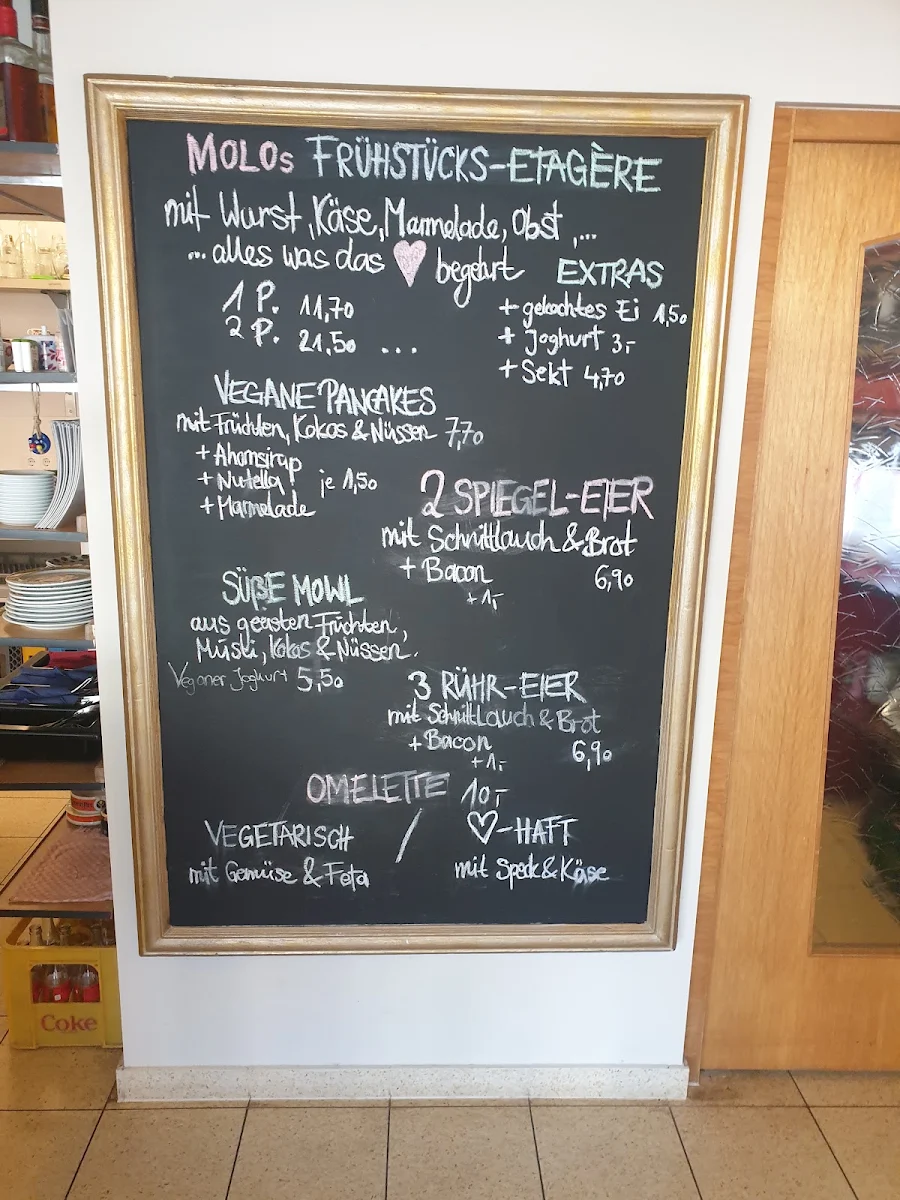 MOLOs FRÜHSTÜCKS-ETAGÈRE
mit Wurst, Käse, Marmelade, Obst,...
...alles was das ♥ begehrt
1 P. 11,70
2 P. 21,50 ...
EXTRAS
+ gekochtes Ei 1,50
+ Joghurt 3,-
+ Sekt 4,70
VEGANE PANCAKES
mit Früchten, Kokos & Nüssen 7,70
+ Ahornsirup
+ Nutella je 1,50
+ Marmelade
2 SPIEGEL-EIER
mit Schnittlauch & Brot
+ Bacon 6,90
+1,-
SÜßE MOWL
aus geeisten Früchten,
Müsli, Kokos & Nüssen.
Veganer Joghurt 5,50
3 RÜHR-EIER
mit Schnittlauch & Brot
+ Bacon 6,90
+1,-
OMELETTE 10,-
VEGETARISCH / ♡-HAFT
mit Gemüse & Feta
mit Speck & Käse
Coke